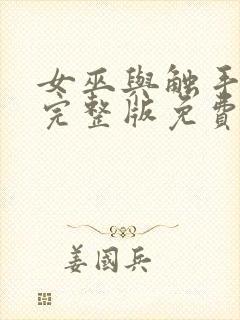 女巫與觸手
完整版免費
姜國兵